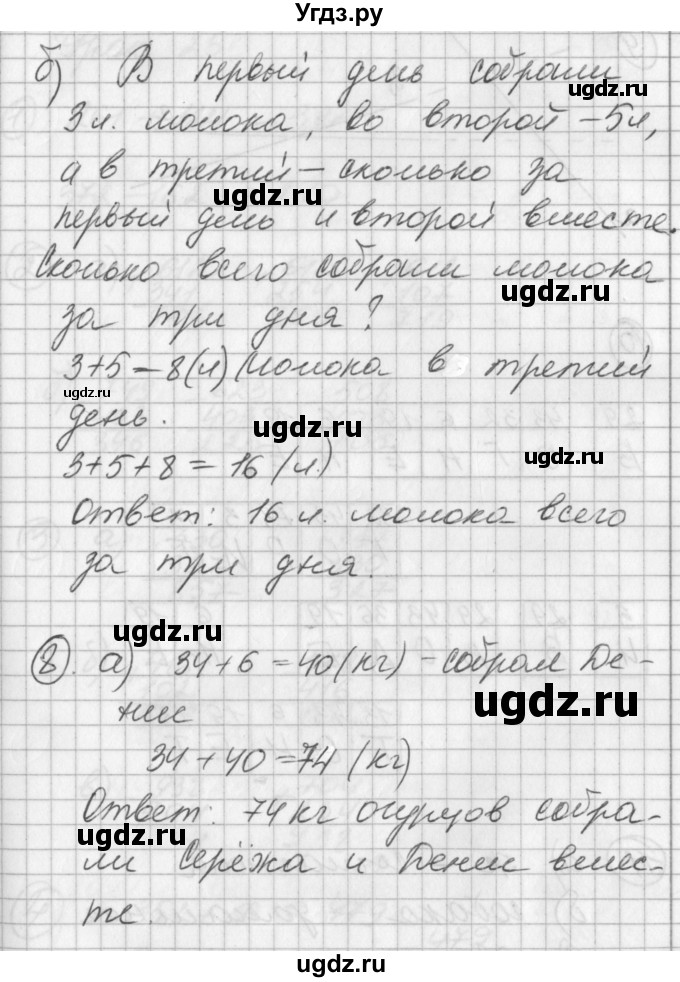 Угдз.ру
б) В первый день собрали
3 л. молока, во второй - 5 л,
а в третий - сколько за
ugdz.ru
первый день и второй вместе.
Сколько всего собрали молока
ugdz.ru
за три дня?
3+5-8(л) молока в третий
ugdz.ru
день.
ugdz.ru
3+5+8=16 (л.)
ugdz.ru
Ответ: 16 л. молока всего
за три дня.
ugdz.ru
8. а) 34+6=40(кг) - собрал Де-
ugdz.ru
нис
34+40=74 (кг)
Ответ: 74 кг огурцов собра-
ugdz.ru
ли Серёжа и Денис вмес-
те.
ugdz.ru